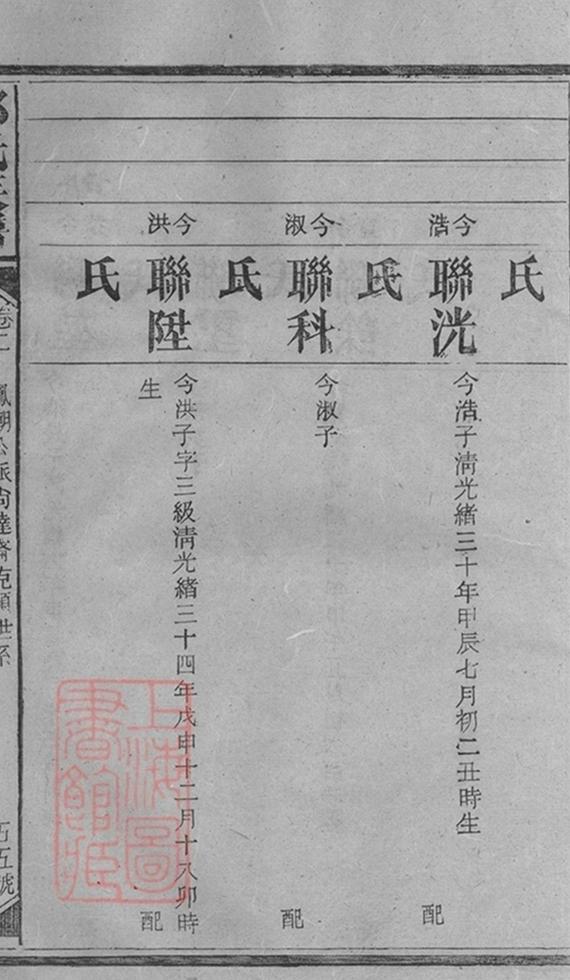 氏
今浩
聯洸
今浩子清光緒三十年甲辰七月初二丑時生
配
氏
今淑
聯科
今淑子
配
氏
今洪
聯陞
今洪子字三級清光緒三十四年戊申十二月十八卯時
生
配
氏
卷二
鳳朝公派尚達齋克顯世系
五號
上海圖
書館藏